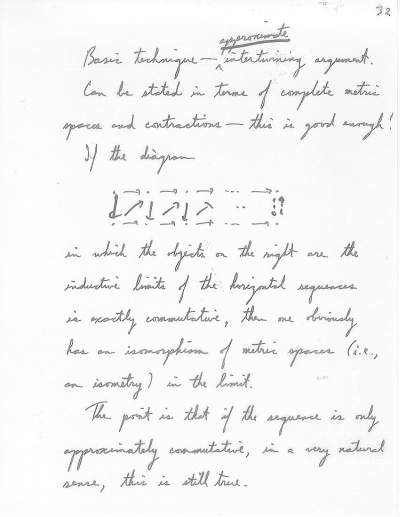 32
approximate
Basic technique — intertwining argument.
Can be stated in terms of complete metric
spaces and contractions — this is good enough!
If the diagram
in which the objects on the right are the
inductive limits of the horizontal sequences
is exactly commutative, then one obviously
has an isomorphism of metric spaces (i.e.,
an isometry) in the limit.
The point is that if the sequence is only
approximately commutative, in a very natural
sense, this is still true.